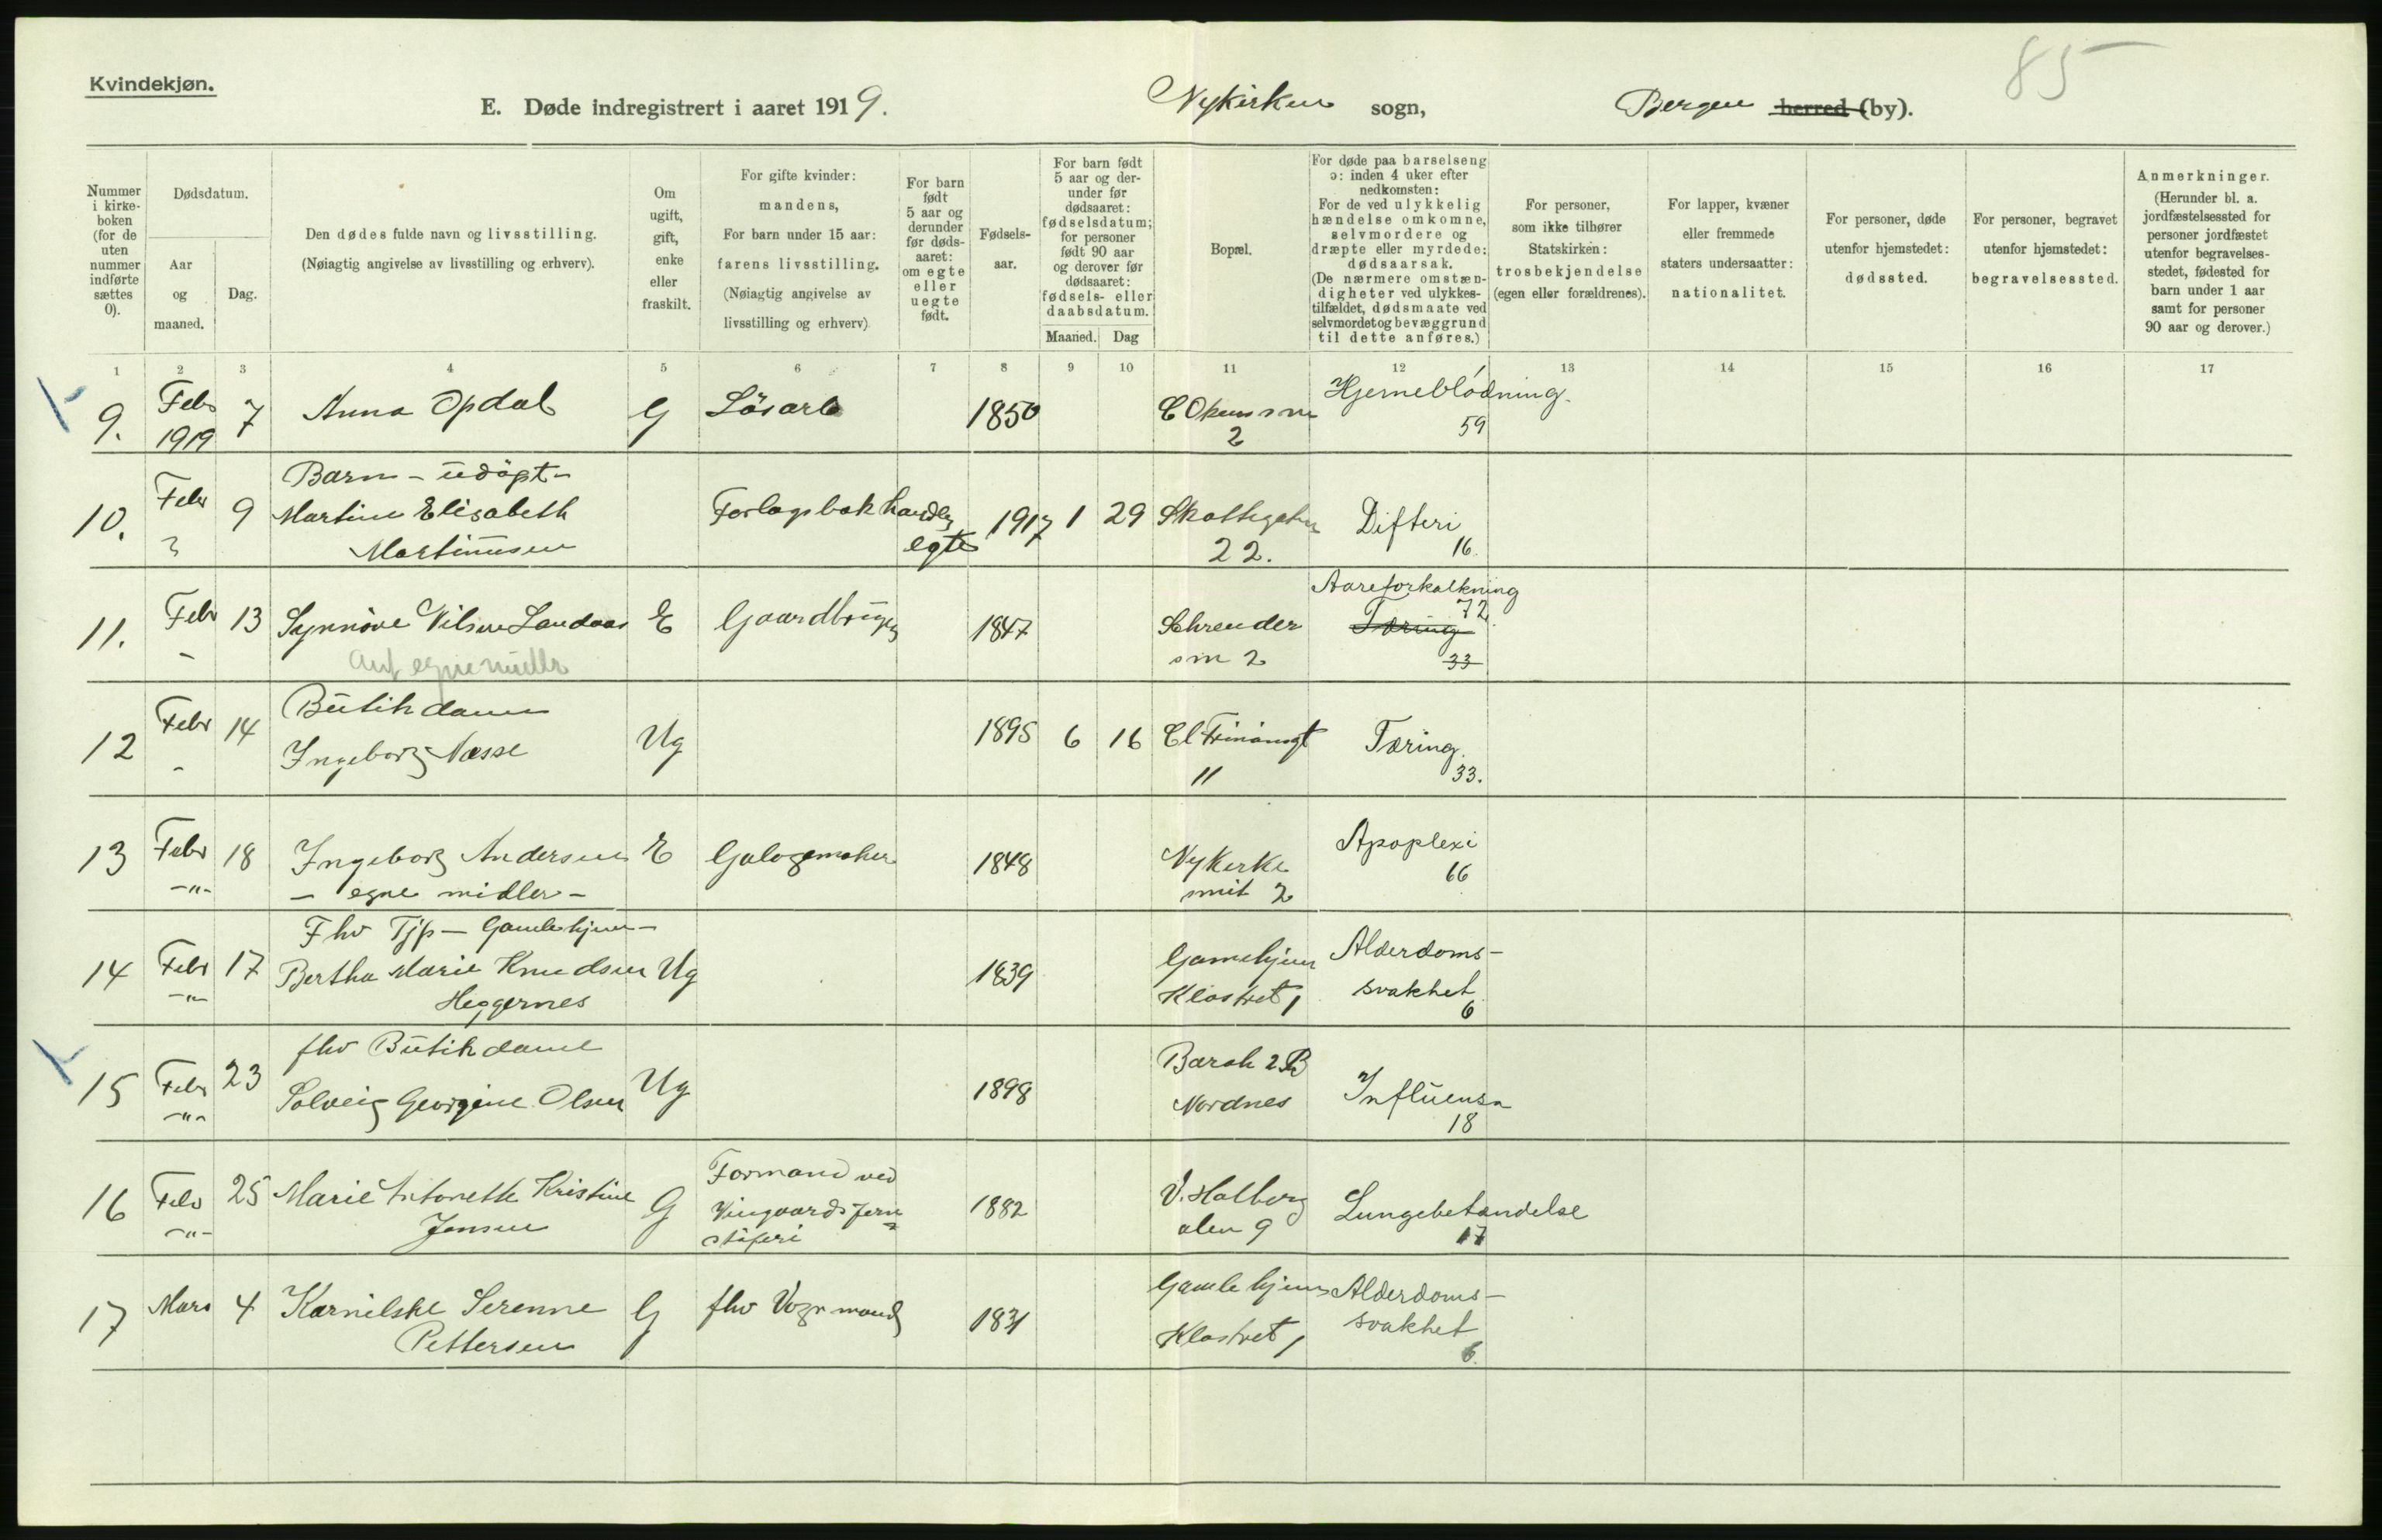 85
Kvindekjøn.
E. Døde indregistrert i aaret 1919. Nykirken sogn, Bergen herred (by).
Nummer i kirke-boken (for de uten nummer indførte sættes 0).
Dødsdatum.
Aar og maaned.
Dag.
Den dødes fulde navn og livsstilling.
(Nøiagtig angivelse av livsstilling og erhverv).
Om ugift, gift, enke eller fraskilt.
For gifte kvinder: mandens,
For barn under 15 aar: farens livsstilling.
(Nøiagtig angivelse av livsstilling og erhverv)
For barn født 5 aar og derunder før døds-aaret: om egte eller uegte født.
Fødsels-aar.
For barn født 5 aar og der-under før dødsaaret: fødselsdatum; for personer født 90 aar og derover før dødsaaret: fødsels- eller daabsdatum.
Maaned. Dag
Bopæl.
For døde paa barselseng ɔ: inden 4 uker efter nedkomsten:
For de ved ulykkelig hændelse omkomne, selvmordere og dræpte eller myrdede: dødsaarsak.
(De nærmere omstæn-digheter ved ulykkes-tilfældet, dødsmaate ved selvmordet og bevæggrund til dette anføres.)
For personer, som ikke tilhører Statskirken: trosbekjendelse (egen eller forældrenes).
For lapper, kvæner eller fremmede staters undersaatter: nationalitet.
For personer, døde utenfor hjemstedet: dødssted.
For personer, begravet utenfor hjemstedet: begravelsessted.
Anmerkninger.
(Herunder bl. a. jordfæstelsessted for personer jordfæstet utenfor begravelses-stedet, fødested for barn under 1 aar samt for personer 90 aar og derover.)
1 2 3 4 5 6 7 8 9 10 11 12 13 14 15 16 17
9. Febr 1919 7 Anna Opdal G Lösarb 1850 2 Hjerneblödning. 59
10. Febr 9 Barn - udöpt -
Martine Elisabeth
Martinusen
Forlagsbokhandler egte 1917 1 29 Skottegaten 22. Difteri 16.
11. Febr 13 Synnöve Nilsen Landaas E Gaardbruger 1847 Schreuder sm 2 Aareforkalkning 72. Tæring 33
egne midler
12 Febr 14 Butikdame
Ingeborg Næsse Ug 1895 6 16 11 Tæring. 33.
13 Febr -"- 18 Ingeborg Andersen E Galogemaker 1848 Nykirke smit 2 Apoplexi 66
- egne midler -
14 Febr -"- 17 Fhv Tjp - Gamlehjem -
Bertha Marie Knudsen Ug 1839 Gamlehjem Klostret 1 Alderdoms-svakhet 6
Heggernes
15 Febr -"- 23 fhv Butikdame
Solveig Georgine Olsen Ug 1898 Barak 2B Nordnes Influensa 18
16 Febr -"- 25 Marie Antonette Kristine
Jensen G Formand ved Wingaards Jern stöperi 1882 V. Holberg alm 9 Lungebetændelse 17
17 Mars 4 Karnilske Serenne
Pettersen G fhv Vogmand 1831 Gamlehjem Klostret 1 Alderdoms-svakhet 6.